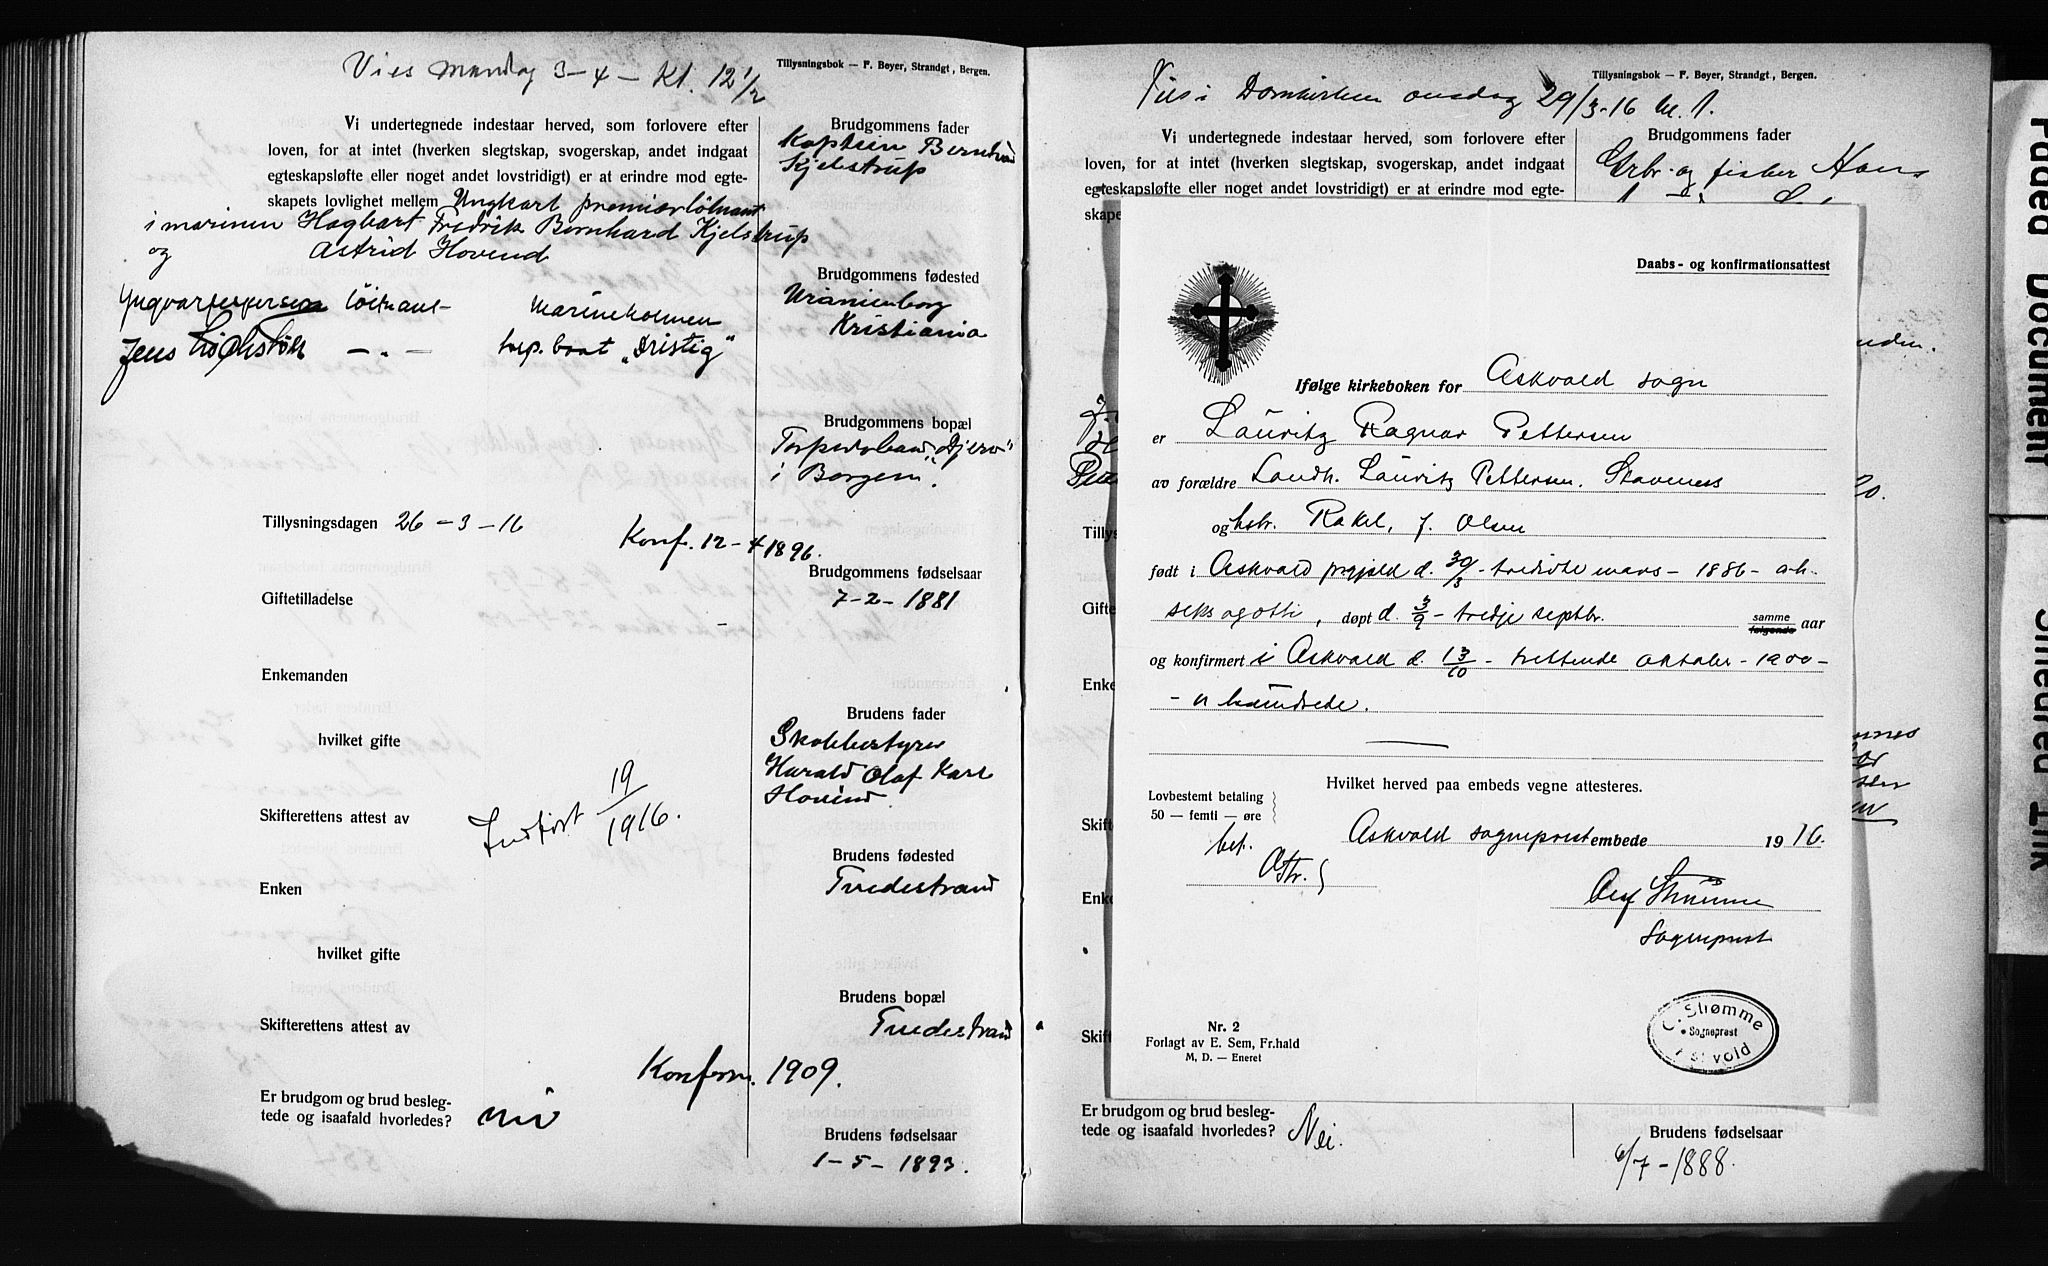 Vies mandag 3-4- Kl. 12 1/2
Tillysningsbok — F. Beyer, Strandgt., Bergen.
Vi undertegnede indestaar herved, som forlovere efter
loven, for at intet (hverken slegtskap, svogerskap, andet indgaat
egteskapsløfte eller noget andet lovstridigt) er at erindre mod egte-
skapets lovlighet mellem Ungkarl premierløitnant
i marinen Hagbart Fredrik Bernhard Kjelstrup
og Astrid Hovind
Yngvar løitnant- Marineholmen
Jens -„- torp.baat „Dristig"
Brudgommens fader
Kaptein Berndhard
Kjelstrup
Brudgommens fødested
Uranienborg
Kristiania
Brudgommens bopæl
Torpedobaad „Djerv"
i Bergen.
Tillysningsdagen 26-3-16
Konf. 12-4 1896.
Brudgommens fødselsaar
7-2-1881
Giftetilladelse
Enkemanden
hvilket gifte
Brudens fader
Skolebestyrer
Harald Olaf Karl
Hovind.
Skifterettens attest av
Indført 19/1916.
Brudens fødested
Tvedestrand
Enken
hvilket gifte
Brudens bopæl
Tvedestrand
Skifterettens attest av
Konferm. 1909.
Er brudgom og brud besleg-
tede og isaafald hvorledes? nei
Brudens fødselsaar
1-5-1893.
Tillysningsbok — F. Beyer, Strandgt., Bergen.
Vies i Domkirken onsdag 29/3-16 kl. 1.
Vi undertegnede indestaar herved, som forlovere efter
loven, for at intet (hverken slegtskap, svogerskap, andet indgaat
egteskapsløfte eller noget andet lovstridigt) er at erindre mod egte-
skape
Brudgommens fader
Grbr. og fisker Hans
Daabs- og konfirmationsattest
Ifølge kirkeboken for Askvold sogn
er Lauritz Ragnar Pettersen
av forældre Landh. Lauritz Pettersen, Staveness
og hstr. Rakel, f. Olsen
født i Askvold prgjeld d. 30/3 - tredivte mars - 1886 - at-
seks og otti, døpt d. 3/9 - tredje septbr. samme følgende aar
og konfirmert i Askvold d. 13/10 - trettende oktober - 1900 -
- n hundrede.
Hvilket herved paa embeds vegne attesteres.
Lovbestemt betaling
50 — femti — øre
bet.
Askvold sogneprestembede 1916.
Olaf Strømme
Sogneprest
C. Strømme
Sogneprest
Askvold
Nr. 2
Forlagt av E. Sem, Fr.hald
M. D. — Eneret
Tillys
Gifte
Enke
Skifte
Enke
Skift
Er brudgom og brud besleg-
tede og isaafald hvorledes? Nei.
Brudens fødselsaar
6/7-1888.
Faded Document
Smeared Ink